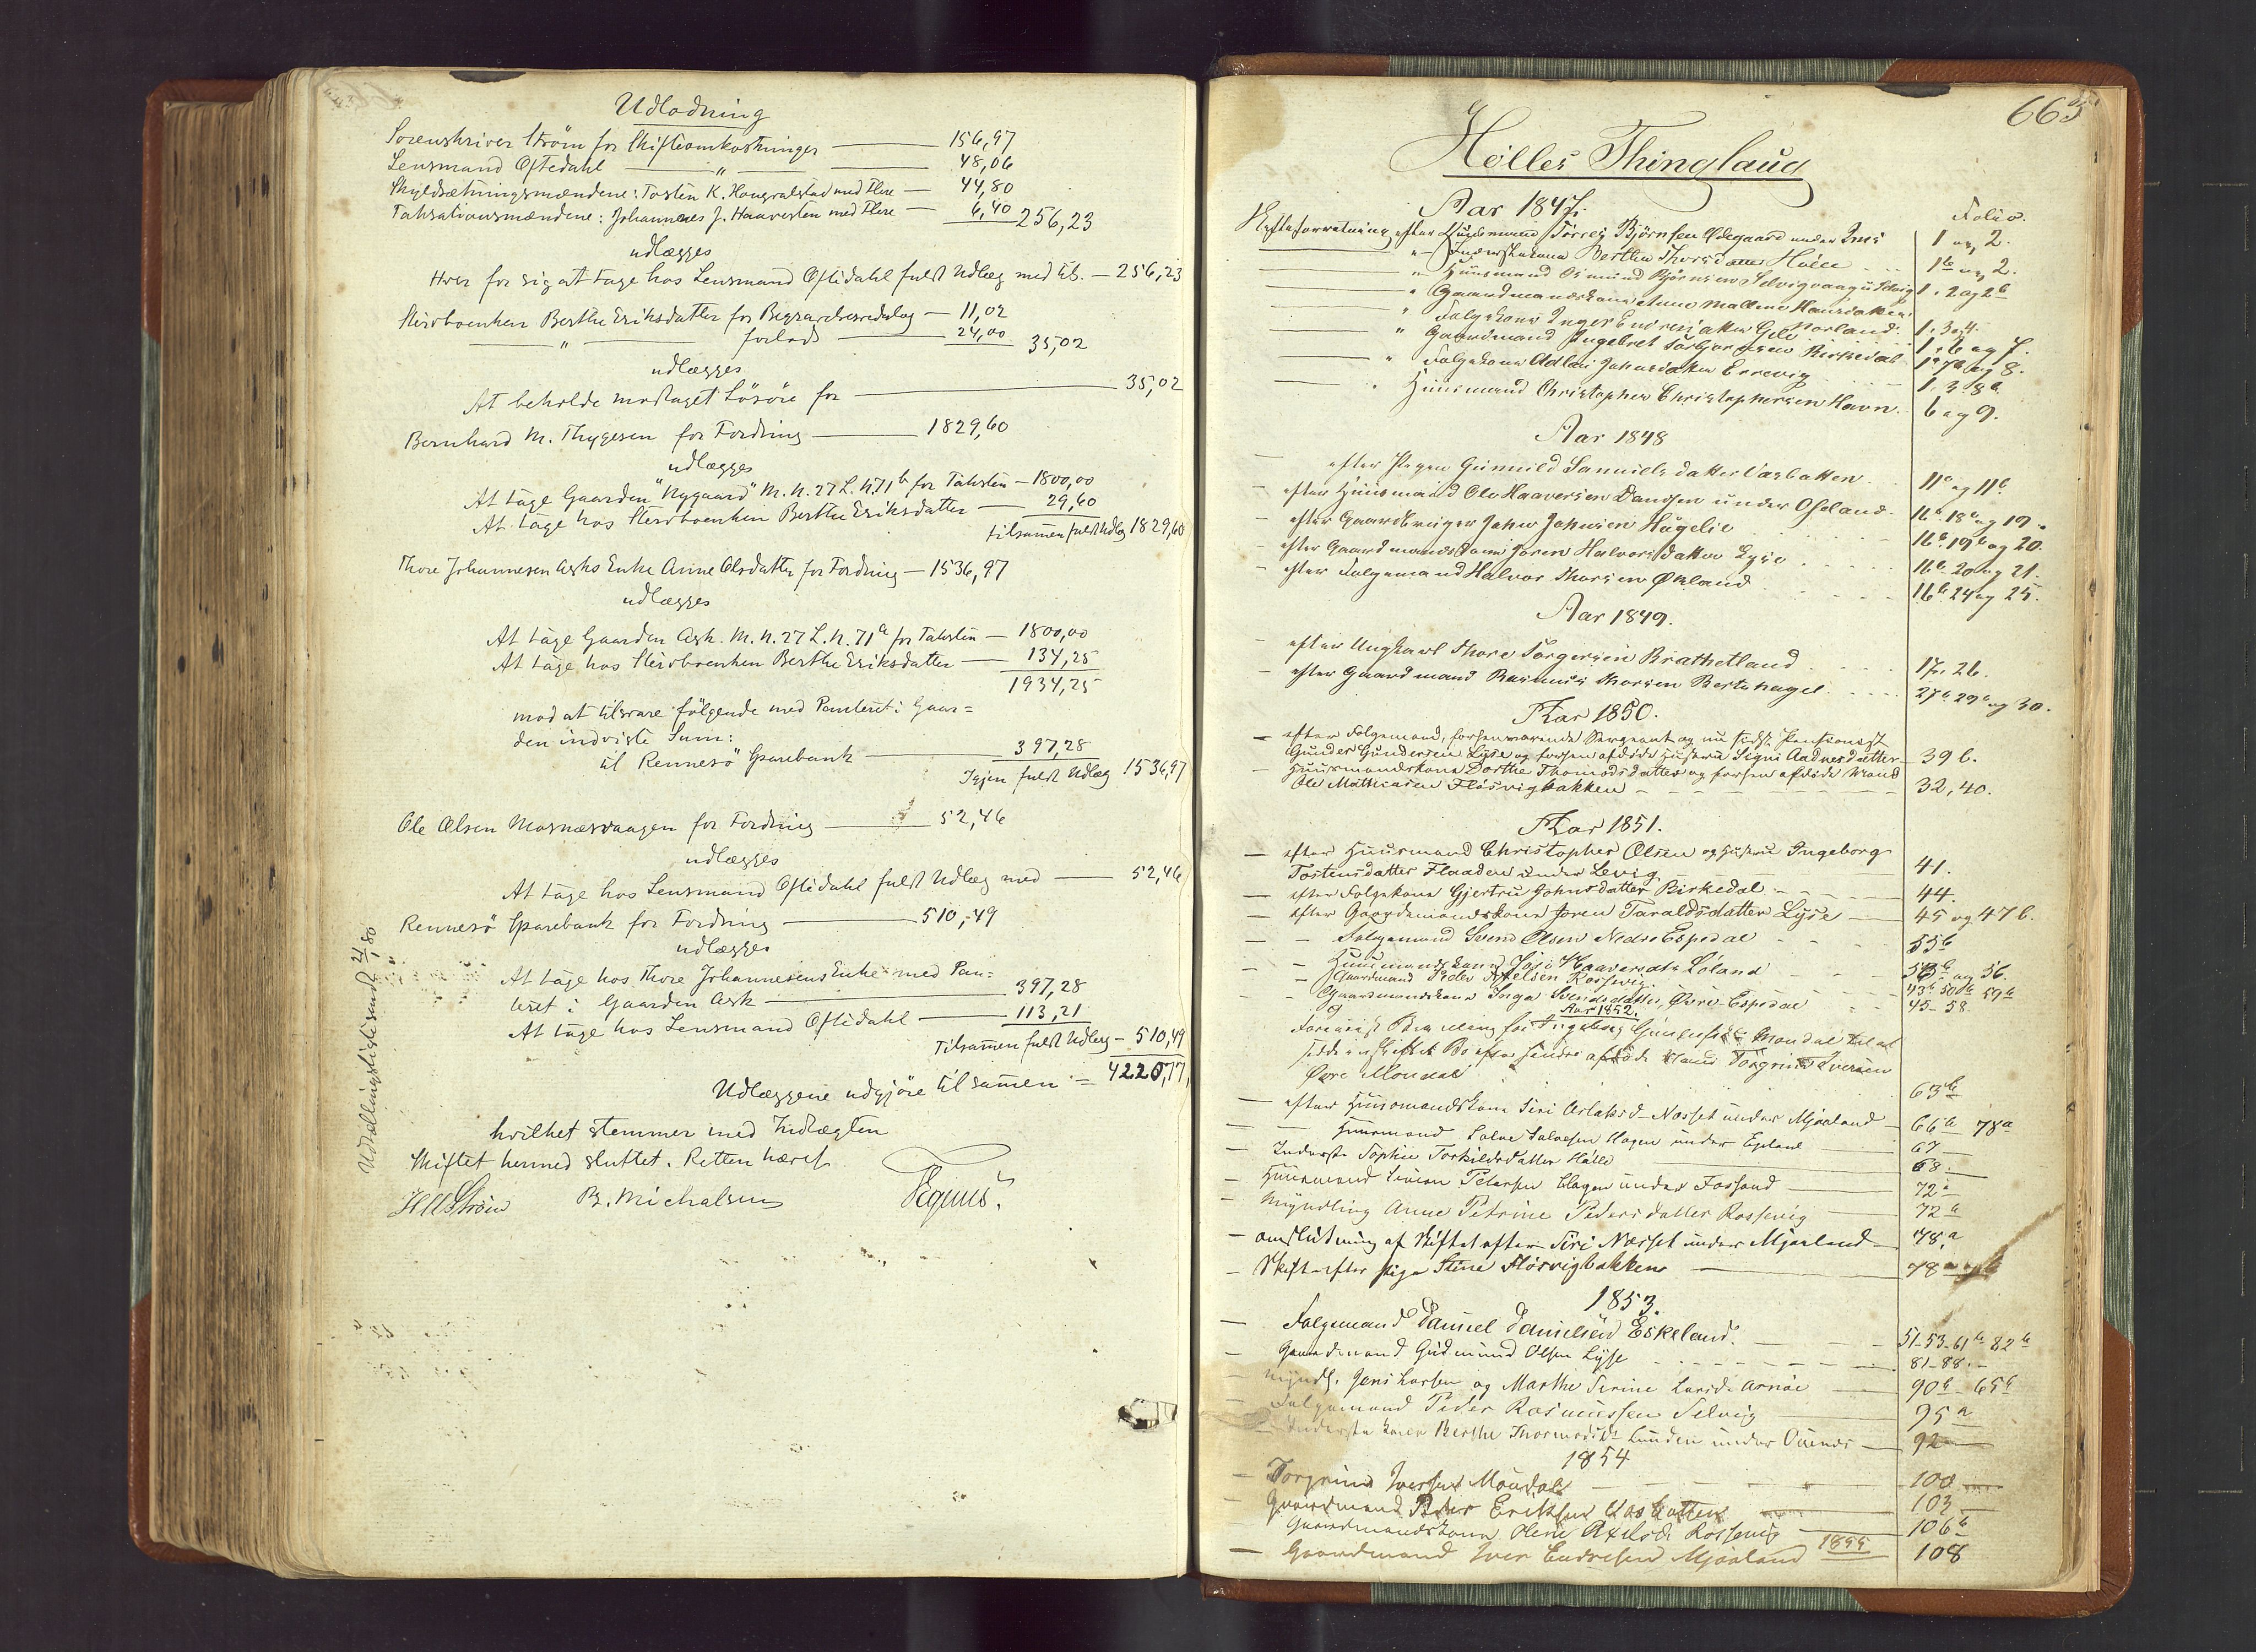 Udlodning
Sorenskriver Strøm for Skifteomkostninger — 156,97
Lensmand Oftedahl — " — 48,06
Skyldsætningsmændene: Tosten K. med Flere — 44,80
Taksationsmændene: Johannes J. Haavesten med Flere — 6,40 256,23
udlægges
Hver for sig at tage hos Lensmand Oftedahl fuldt Udlæg med tils. — 256,23
Stervboenken Berthe Eriksdatter for Begravelsesudlæg — 11,02
— " — forlods — 24,00 35,02
udlægges
At beholde modtaget Løsøre for — 35,02
Bernhard M. Thygesen for Fordring — 1829,60
udlægges
At tage Gaarden "Nygaard" M. N. 27 L. N. 71b for Taksten — 1800,00
At tage hos Stervboenken Berthe Eriksdatter — 29,60
tilsamen fuldt Udlæg 1829,60
Thore Johannesen Asks Enke Anne Olsdatter for Fordring — 1536,97
udlægges
At tage Gaarden Ask. M. N. 27 L. N. 71a for Taksten — 1800,00
At tage hos Stervboenken Berthe Eriksdatter — 134,25
1934,25
mod at tilsvare følgende med Panteret i Gaar=
den indviste Sum:
til Rennesø Sparebank — 397,28
Igjen fuldt Udlæg 1536,97
Ole Olsen Mosnæsvaagen for Fordring — 52,46
udlægges
At tage hos Lensmand Oftedahl fuldt Udlæg med — 52,46
Rennesø Sparebank for Fordring — 510,49
udlægges
At tage hos Thore Johannesens Enke med Pan=
teret i Gaarden Ask — 397,28
At tage hos Lensmand Oftedahl — 113,21
Tilsamen fuldt Udlæg — 510,49
Udlæggene udgjøre tilsamen = 4220,77,
hvilket stemmer med Indtægten
Skiftet hermed sluttet. Retten hævet
Strøm B. Michalsen
663
Hølles Thinglaug
Aar 1847.
Folio.
Skifteforretning efter Huusmand Torrey Bjørnsen Ødegaard under Ims 1 og 2.
— " — Inderstekone Berthe Thorsdatter Hølle 1b og 2.
" Huusmand Osmund Bjørnsen Selvigvaag u/ Selvig 1. 2 og 2b
" Gaardmandskone Anne Mallene Hansdatter
Norland. 1. 3 og 4.
" Folgekone Inger Endresdatter 1. 6 og 7.
" Gaardmand Ingebret Torbjørnsen Birkedal 1. 7a og 8.
" Folgekone Adlau Johnsdatter Errevig 1. 3. 8a
" Huusmand Christopher Christophersen Havn 6 og 9.
Aar 1848
— efter Pigen Gunnild Samuelsdatter 11a og 11b
— efter Huusmand Ole Haaversen under Ofeland. 16a. 18a og 19.
— efter Gaardbruger John Johnsen Høgelie 16b. 19b og 20.
— efter Gaardmandskone Joren Halvorsdatter Lyse 16b. 20 og 21.
— efter Folgemand Halvor Thorsen Økland 16b 24 og 25.
Aar 1849.
— efter Ungkarl Thore Torgersen Brathetland 17. 26.
— efter Gaardmand Rasmus Thorsen Bertehagel 27b 29b og 30.
Aar 1850.
— efter Folgemand, forhenværende Sergeant og nu sidst Pensionist
Gunder Gundersen Lyse og forhen afdøde Hustru Signi Aadnesdatter 39 b.
— Huusmandskone Dorthe Thomasdatter og forhen afdøde Mand
Ole Mathiasen Fløsvigbakken 32, 40.
Aar 1851.
— efter Huusmand Christopher Olsen og Hustru Ingeborg
Tostensdatter Flaaden under Levig 41.
— efter Folgekone Gjertru Johnsdatter Birkedal 44.
— efter Gaardmandskone Joren Taraldsdatter Lyse 45 og 47 b.
— Folgemand Svend Olsen Nedre Espedal 55b
— Huusmandskone Haaversdtr Løland 53b og 56.
— Gaardmand Peder Axelsen Rossevig 43b 50b 59b
— Gaardmandskone Inga Svendsdatter, Øvre Espedal 45–58
Aar 1852.
Bevilling for Ingeborg Mondal til at
sidde i uskiftet Bo efter hendes afdøde Mand Torgrim Iversen
Øvre Mondal 63b
— efter Huusmandskone Siri Aslaksd. Næsset under Mjøaland 66b 78a
— Huusmand Salve Salvesen Hagen under Egeland 67
— Inderst Sophie Torkildsdatter Hølle 68.
— Huusmand Simon Petersen Hagen under Fossand 72a
— Myndling Anne Petrine Pedersdatter Rossevig 72b
— om Slutning af Skiftet efter Siri Næsset under Mjøaland 78.a
— Skifte efter Pige Stine Fløsvigbakken 78
1853.
— Folgemand Daniel Danielsen Eskeland. 51–53–61b–82b
— Gaardmand Gudmund Olsen Lyse 81–88.
— Myndl. Jens Larsen og Marthe Serine Larsd. Arnøe 90b–65b
— Folgemand Peder Rasmussen Selvig 95a
— Inderstekone Berthe Thormodsdr Lunden under 92
1854
— Torgrim Iversen Mondal 100
— Gaardmand Peder Eriksen 103
Gaardmandskone Olene Axelsd. Rossevig 106b
— Gaardmand Iver Endresen Mjøaland 1855 108